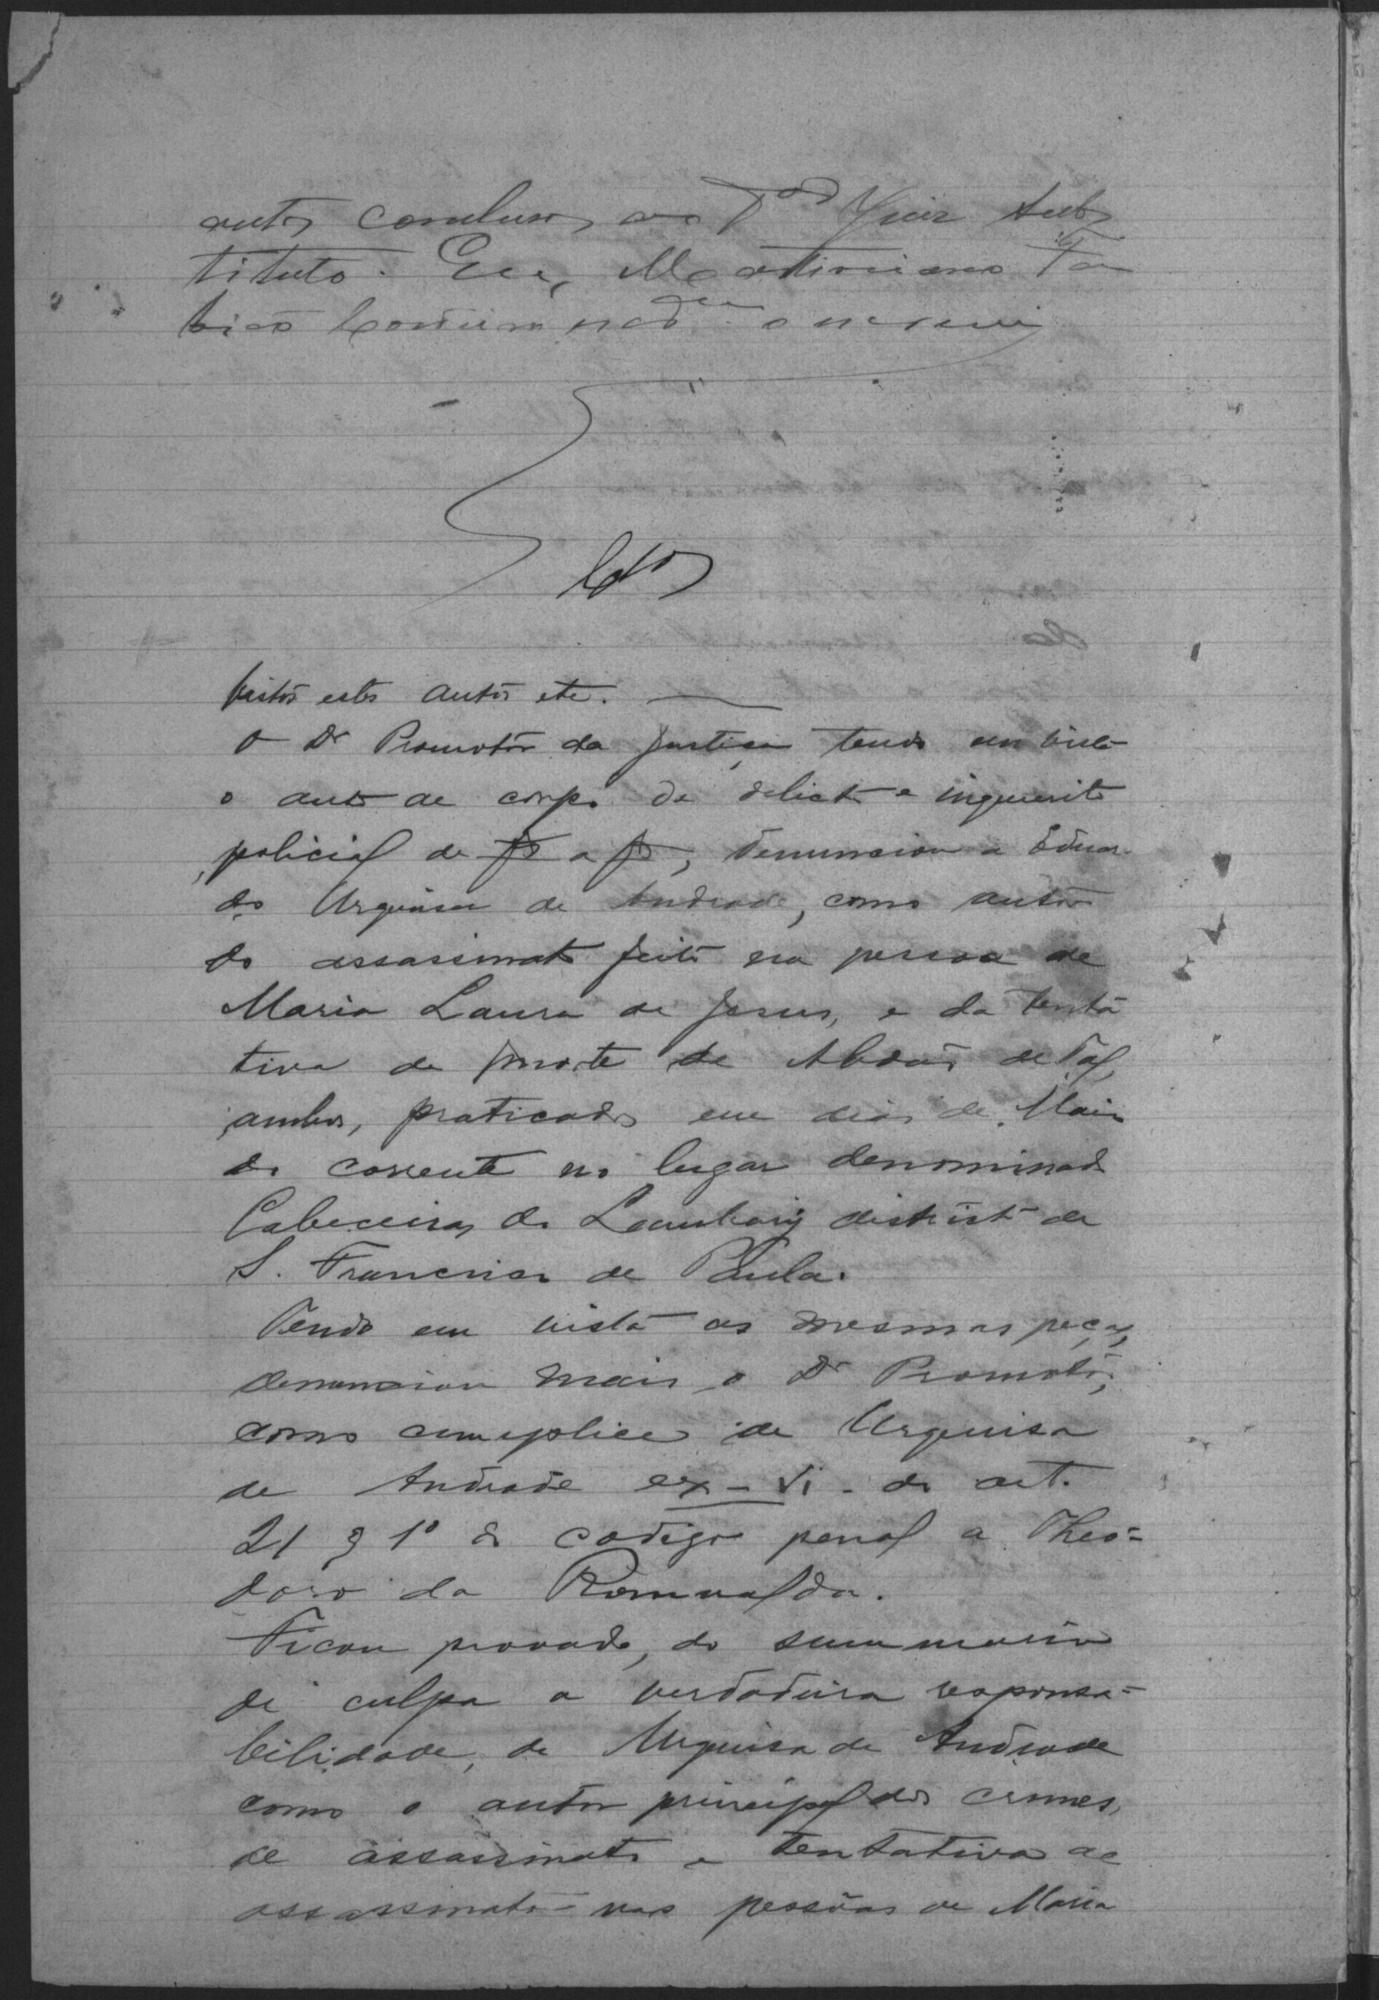 autos conclusos ao Juiz Subs
tituto. Eu,
o escrevi
Clos
Vistos estes autos etc.
O Dr Promotor da Justiça tendo em vista
o auto de corpo de delicto e inquerito
policial de fs a fs, denunciou a Eduar-
do Urquisa de Andrade, como autor
do assassinato feito na pessoa de
Maria Laura de Jesus, e da tenta
tiva de morte de de Tal,
ambos, praticados em dias de Maio
do corrente no lugar denominado
Cabeceiras do Lambary districto de
S. Francisco de Paula.
Tendo em vista as mesmas peças,
denunciou mais o Dr Promotor,
como cumplice de Urquisa
de Andrade ex-vi do art.
21 § 1º do codigo penal a Theo-
doro da Romualda.
Ficou provado, do summario
de culpa a verdadeira responsa-
bilidade, de Urquisa de Andrade
como o autor principal dos crimes,
de assassinato e tentativa de
assassinato nas pessôas de Maria